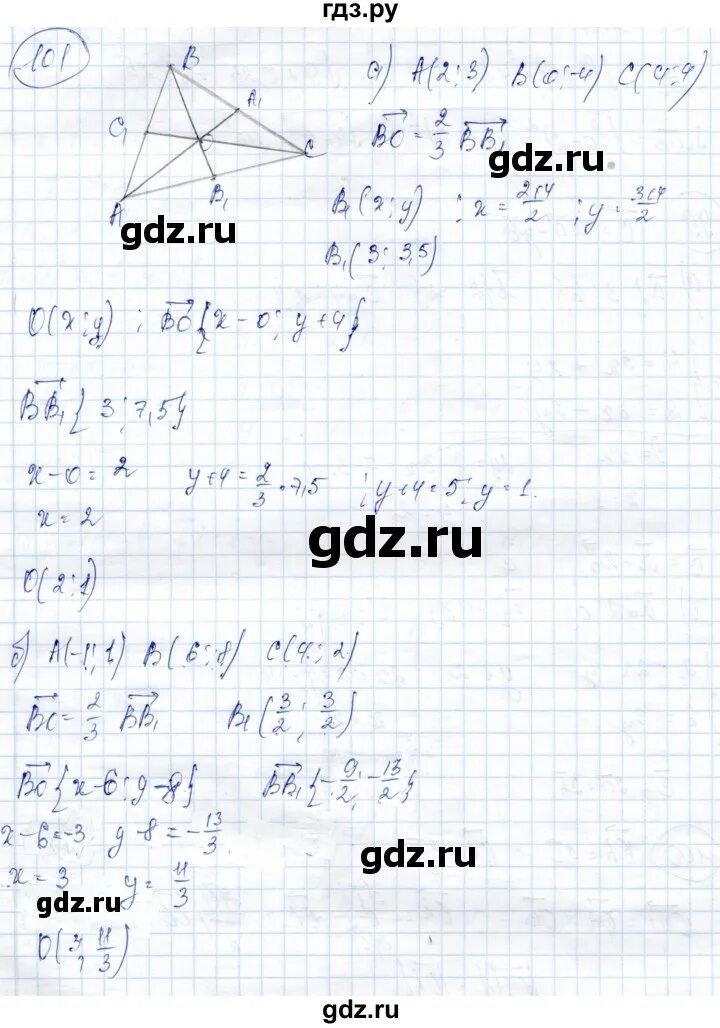 гдз.ру
101
B
A₁
C₁
O
C
B₁
A
а) A(2; 3) B(0; -4) C(4; 4)
BO⃗ = 2/3 BB₁⃗
gdz.ru
B₁(x; y) ; x = 2+4/2 ; y = 3+4/2
gdz.ru
B₁(3; 3,5)
O(x; y) ; BO⃗{x-0; y+4}
BB₁⃗{3; 7,5}
x-0=2 y+4=2/3·7,5 ; y+4=5; y=1.
x=2
gdz.ru
O(2; 1)
б) A(-1; 1) B(6; 8) C(4; 2)
BC⃗ = 2/3 BB₁⃗ B₁(3/2; 3/2)
BO⃗{x-6; y-8} BB₁⃗{-9/2; -13/2}
x-6=-3 y-8=-13/3
gdz.ru
x=3 y=11/3
gdz.ru
O(3; 11/3)
gdz.ru